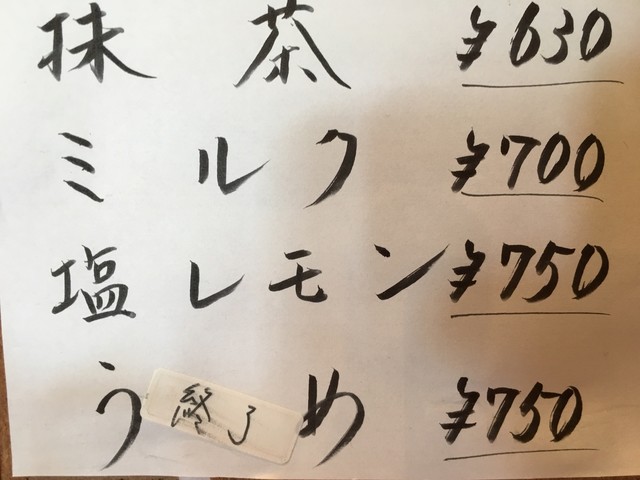 抹茶 ¥630
ミルク ¥700
塩レモン ¥750
うめ ¥750
終了